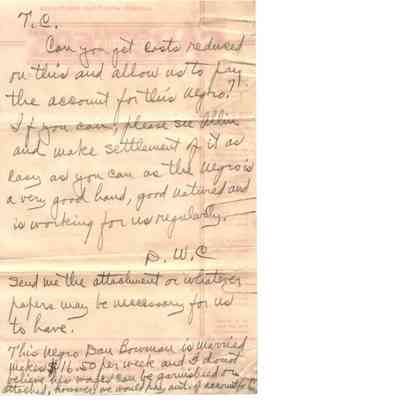 T.C.
Can you get costs reduced
on this and allow us to pay
the account for this negro?
If you can, please see Allin
and make settlement of it as
easy as you can as the negro is
a very good hand, good natured and
is working for us regularly.
D. W. C
Send me the attachment or whatever
papers may be necessary for us
to have.
This negro Dan Bowman is married
makes $16.50 per week and I do not
believe his wages can be garnished or
attached, however we would pay amt. of account for